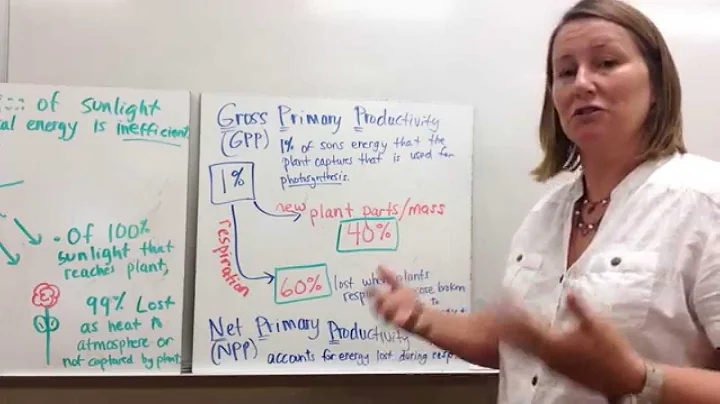 of sunlight
energy is inefficient
. Of 100%
sunlight that
reaches plant,
99% Lost
as heat
atmosphere or
not captured by plant
Gross Primary Productivity
(GPP)
1% of sons energy that the
plant captures that is used for
photosynthesis.
1%
new plant parts/mass
40%
respiration
60%
lost when plants
broken
to
Net Primary Productivity
(NPP)
accounts for energy lost during